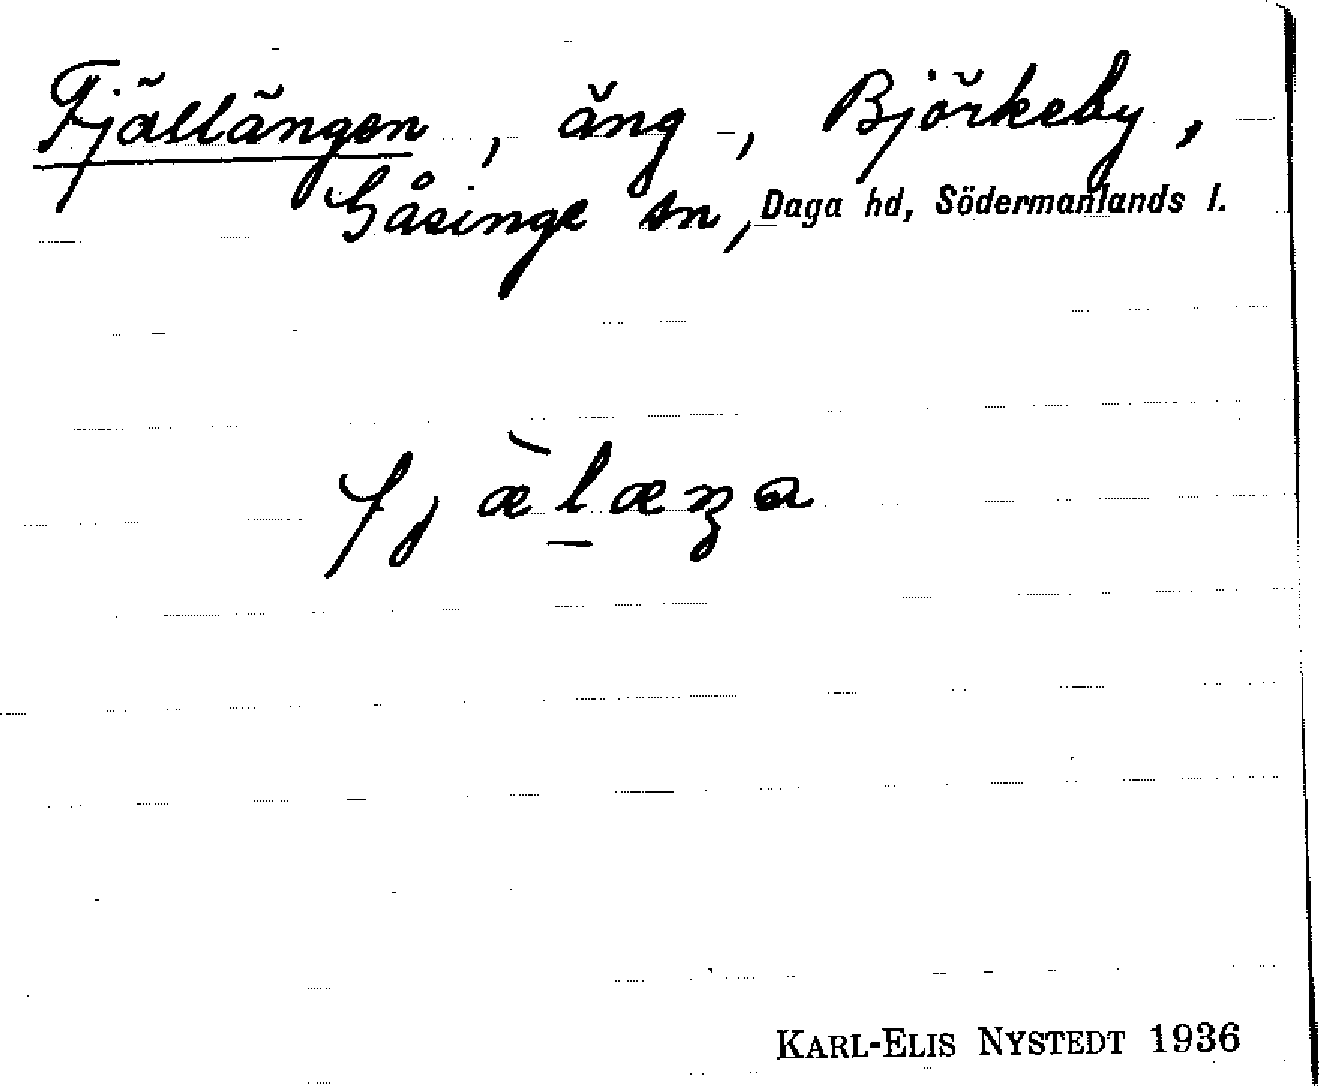 Fjällängen, äng, Björkeby,
Gåsinge sn, Daga hd, Södermanlands l.
fjæ̀læŋa
KARL-ELIS NYSTEDT 1936